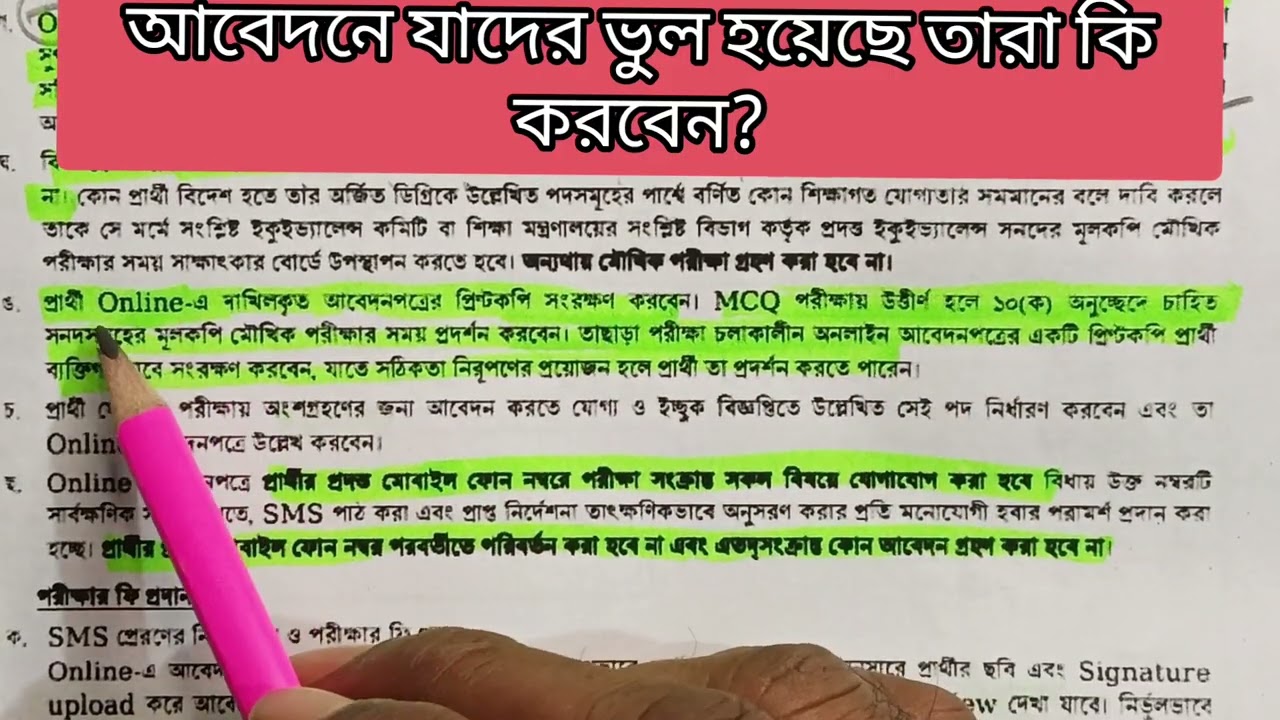 আবেদনে যাদের ভুল হয়েছে তারা কি
করবেন?
না। কোন প্রার্থী বিদেশ হতে তাঁর অর্জিত ডিগ্রিকে উল্লেখিত পদসমূহের পার্শ্বে বর্ণিত কোন শিক্ষাগত যোগ্যতার সমমানের বলে দাবি করলে
তাকে সে মর্মে সংশ্লিষ্ট ইকুইভ্যালেন্স কমিটি বা শিক্ষা মন্ত্রণালয়ের সংশ্লিষ্ট বিভাগ কর্তৃক প্রদত্ত ইকুইভ্যালেন্স সনদের মূলকপি মৌখিক
পরীক্ষার সময় সাক্ষাৎকার বোর্ডে উপস্থাপন করতে হবে। অন্যথায় মৌখিক পরীক্ষা গ্রহণ করা হবে না।
ঙ. প্রার্থী Online-এ দাখিলকৃত আবেদনপত্রের প্রিন্টকপি সংরক্ষণ করবেন। MCQ পরীক্ষায় উত্তীর্ণ হলে ১০(ক) অনুচ্ছেদে চাহিত
মূলকপি মৌখিক পরীক্ষার সময় প্রদর্শন করবেন। তাছাড়া পরীক্ষা চলাকালীন অনলাইন আবেদনপত্রের একটি প্রিন্টকপি প্রার্থী
সংরক্ষণ করবেন, যাতে সঠিকতা নিরূপণের প্রয়োজন হলে প্রার্থী তা প্রদর্শন করতে পারেন।
চ. প্রার্থী পরীক্ষায় অংশগ্রহণের জন্য আবেদন করতে যোগ্য ও ইচ্ছুক বিজ্ঞপ্তিতে উল্লেখিত সেই পদ নির্ধারণ করবেন এবং তা
উল্লেখ করবেন।
ছ. Online প্রার্থীর প্রদত্ত মোবাইল ফোন নম্বরে পরীক্ষা সংক্রান্ত সকল বিষয়ে যোগাযোগ করা হবে বিধায় উক্ত নম্বরটি
সার্বক্ষণিক SMS পাঠ করা এবং প্রাপ্ত নির্দেশনা তাৎক্ষণিকভাবে অনুসরণ করার প্রতি মনোযোগী হবার পরামর্শ প্রদান করা
হচ্ছে। প্রার্থীর ফোন নম্বর পরবর্তীতে পরিবর্তন করা হবে না এবং এতদ্‌সংক্রান্ত কোন আবেদন গ্রহণ করা হবে না।
পরীক্ষার ফি প্রদান
ক. SMS প্রেরণের ও পরীক্ষার
Online-এ প্রার্থীর ছবি এবং Signature
upload করে দেখা যাবে। নির্ভুলভাবে